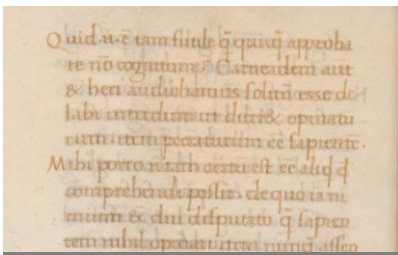 Quid .n. ē tam futile q̄ quicq̄ approba
re nō cognitum Carneadem aūt
& heri audiebamus solitū esse de
labi interdum ut dicer& opinatu
rum .i. peccaturum eē sapientē.
Mihi porro n̄ tam certū est eē aliqd qd
comprehendi possit. de quo iam
nimium & diu disputato q̄ sapien
tem nihil opinari